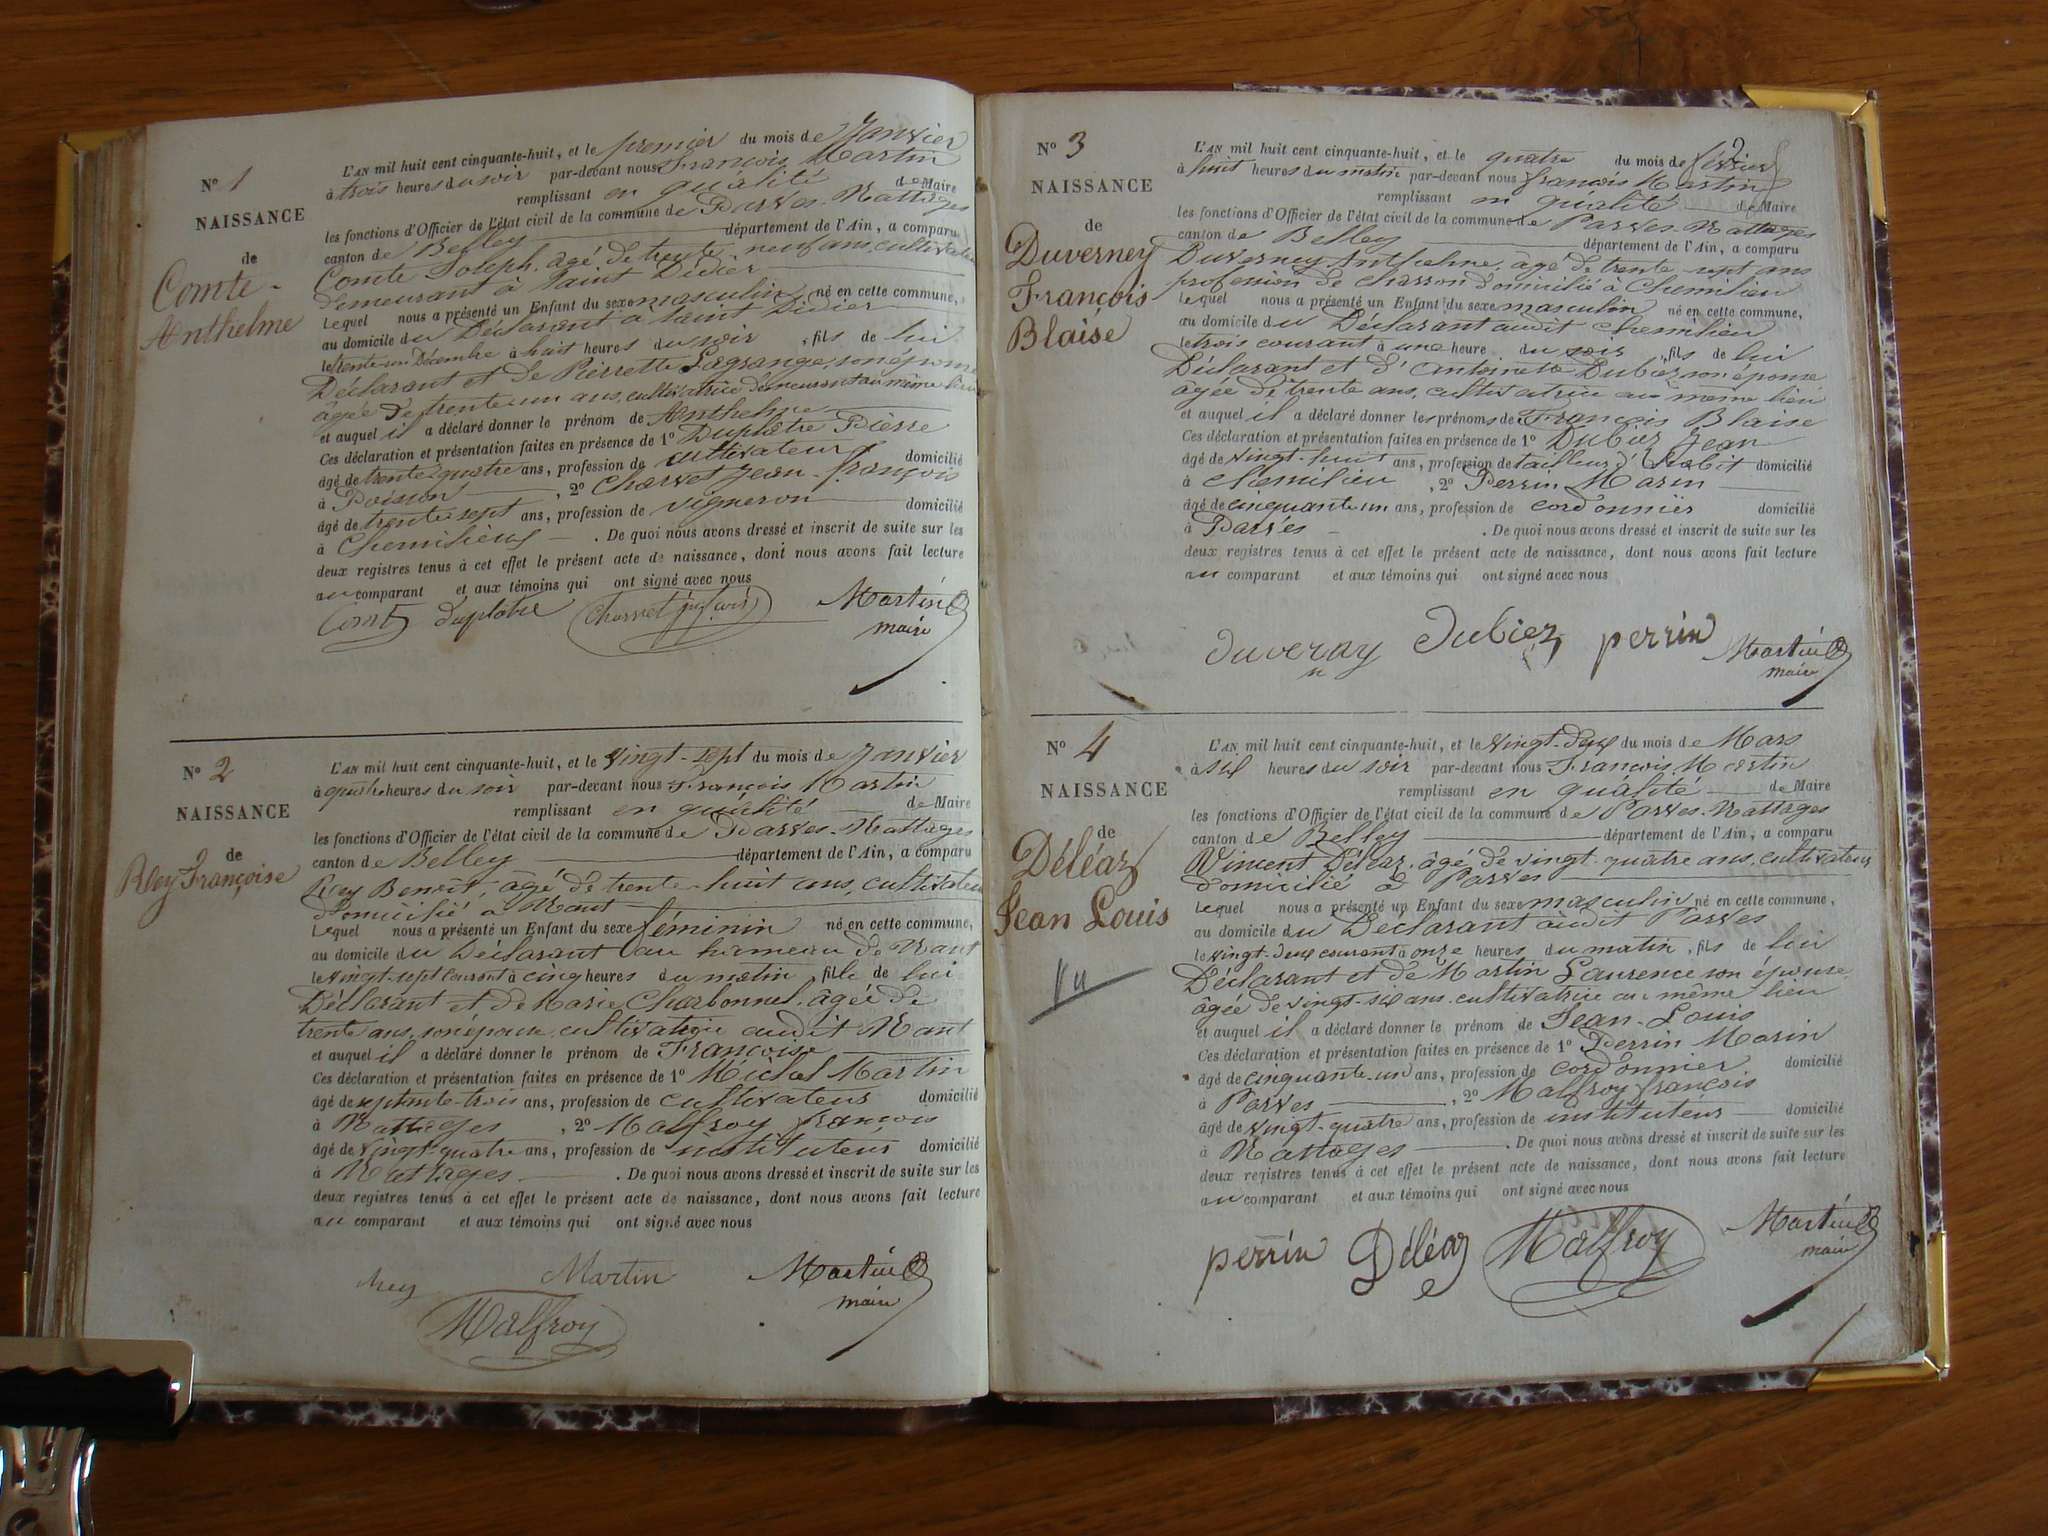 N° 1
NAISSANCE
de
Comte
Anthelme
L'AN mil huit cent cinquante-huit, et le premier du mois de Janvier
à trois heures du soir par-devant nous François Martin
remplissant en qualité de Maire
les fonctions d'Officier de l'état civil de la commune de Parves-Nattages
canton de Belley département de l'Ain, a comparu
Comte Joseph, âgé de trente neuf ans, cultivateur
demeurant à Saint Didier
Lequel nous a présenté un Enfant du sexe masculin né en cette commune,
au domicile du Déclarant à Saint Didier
le trente un Décembre à huit heures du soir, fils de lui
Déclarant et de Pierrette Lagrange, son épouse
âgée de trente un ans, cultivatrice demeurant au même lieu
et auquel il a déclaré donner le prénom de Anthelme
Ces déclaration et présentation faites en présence de 1° Duplatre Pierre
âgé de trente quatre ans, profession de cultivateur domicilié
à Poisson, 2° Charvet Jean-François
âgé de trente sept ans, profession de vigneron domicilié
à Chemilieu. De quoi nous avons dressé et inscrit de suite sur les
deux registres tenus à cet effet le présent acte de naissance, dont nous avons fait lecture
au comparant et aux témoins qui ont signé avec nous
Comte duplatre Charvet Martin
maire
N° 2
NAISSANCE
de
Rey Françoise
L'AN mil huit cent cinquante-huit, et le vingt-sept du mois de Janvier
à quatre heures du soir par-devant nous François Martin
remplissant en qualité de Maire
les fonctions d'Officier de l'état civil de la commune de Parves-Nattages
canton de Belley département de l'Ain, a comparu
Rey Benoît, âgé de trente-huit ans, cultivateur
domicilié à Nant
Lequel nous a présenté un Enfant du sexe féminin né en cette commune,
au domicile du Déclarant au hameau de Nant
le vingt-sept courant à cinq heures du matin, fille de lui
Déclarant et de Marie Charbonnel, âgée de
trente ans, son épouse cultivatrice audit Nant
et auquel il a déclaré donner le prénom de Françoise
Ces déclaration et présentation faites en présence de 1° Michel Martin
âgé de septante-trois ans, profession de cultivateur domicilié
à Nattages, 2° Malfroy françois
âgé de vingt-quatre ans, profession de instituteur domicilié
à Nattages. De quoi nous avons dressé et inscrit de suite sur les
deux registres tenus à cet effet le présent acte de naissance, dont nous avons fait lecture
au comparant et aux témoins qui ont signé avec nous
Rey Martin Martin
maire
Malfroy
2
N° 3
NAISSANCE
de
Duverney
François
Blaise
L'AN mil huit cent cinquante-huit, et le quatre du mois de février
à huit heures du matin par-devant nous françois Martin
remplissant en qualité de Maire
les fonctions d'Officier de l'état civil de la commune de Parves-Nattages
canton de Belley département de l'Ain, a comparu
Duverney Anthelme, âgé de trente-sept ans
profession de charron domicilié à Chemilieu
Lequel nous a présenté un Enfant du sexe masculin né en cette commune,
au domicile du Déclarant audit Chemilieu
le trois courant à une heure du soir, fils de lui
Déclarant et d'Antoinette Dubiez son épouse
âgée de trente ans, cultivatrice au même lieu
et auquel il a déclaré donner les prénoms de François Blaise
Ces déclaration et présentation faites en présence de 1° Dubiez Jean
âgé de vingt-huit ans, profession de tailleur d'habit domicilié
à Chemilieu, 2° Perrin Marin
âgé de cinquante un ans, profession de cordonnier domicilié
à Parves. De quoi nous avons dressé et inscrit de suite sur les
deux registres tenus à cet effet le présent acte de naissance, dont nous avons fait lecture
au comparant et aux témoins qui ont signé avec nous
duverny dubiez perrin Martin
maire
N° 4
NAISSANCE
de
Déléaz
Jean Louis
Vu
L'AN mil huit cent cinquante-huit, et le vingt-deux du mois de Mars
à six heures du soir par-devant nous François Martin
remplissant en qualité de Maire
les fonctions d'Officier de l'état civil de la commune de Parves-Nattages
canton de Belley département de l'Ain, a comparu
Vincent Déléaz, âgé de vingt-quatre ans, cultivateur
domicilié à Parves
Lequel nous a présenté un Enfant du sexe masculin né en cette commune,
au domicile du Déclarant audit Parves
le vingt-deux courant à onze heures du matin, fils de lui
Déclarant et de Martin Laurence son épouse
âgée de vingt-six ans, cultivatrice au même lieu
et auquel il a déclaré donner le prénom de Jean-Louis
Ces déclaration et présentation faites en présence de 1° Perrin Marin
âgé de cinquante-un ans, profession de cordonnier domicilié
à Parves, 2° Malfroy françois
âgé de vingt-quatre ans, profession de instituteur domicilié
à Nattages. De quoi nous avons dressé et inscrit de suite sur les
deux registres tenus à cet effet le présent acte de naissance, dont nous avons fait lecture
au comparant et aux témoins qui ont signé avec nous
perrin Déléaz Malfroy Martin
maire